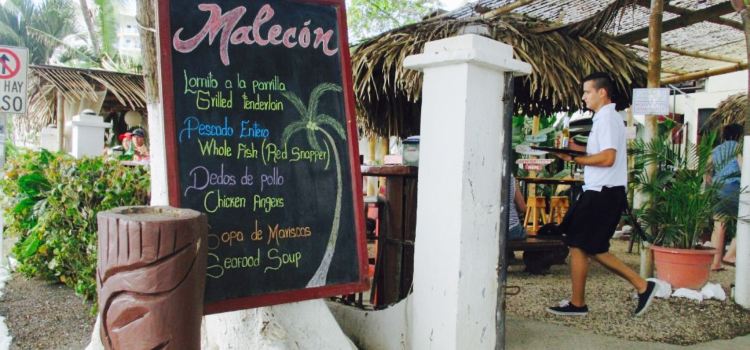 Malecón
Lomito a la parrilla
Grilled tenderloin
Pescado Entero
Whole Fish (Red Snapper)
Dedos de pollo
Chicken Fingers
Sopa de Mariscos
Seafood Soup
HAY
SO